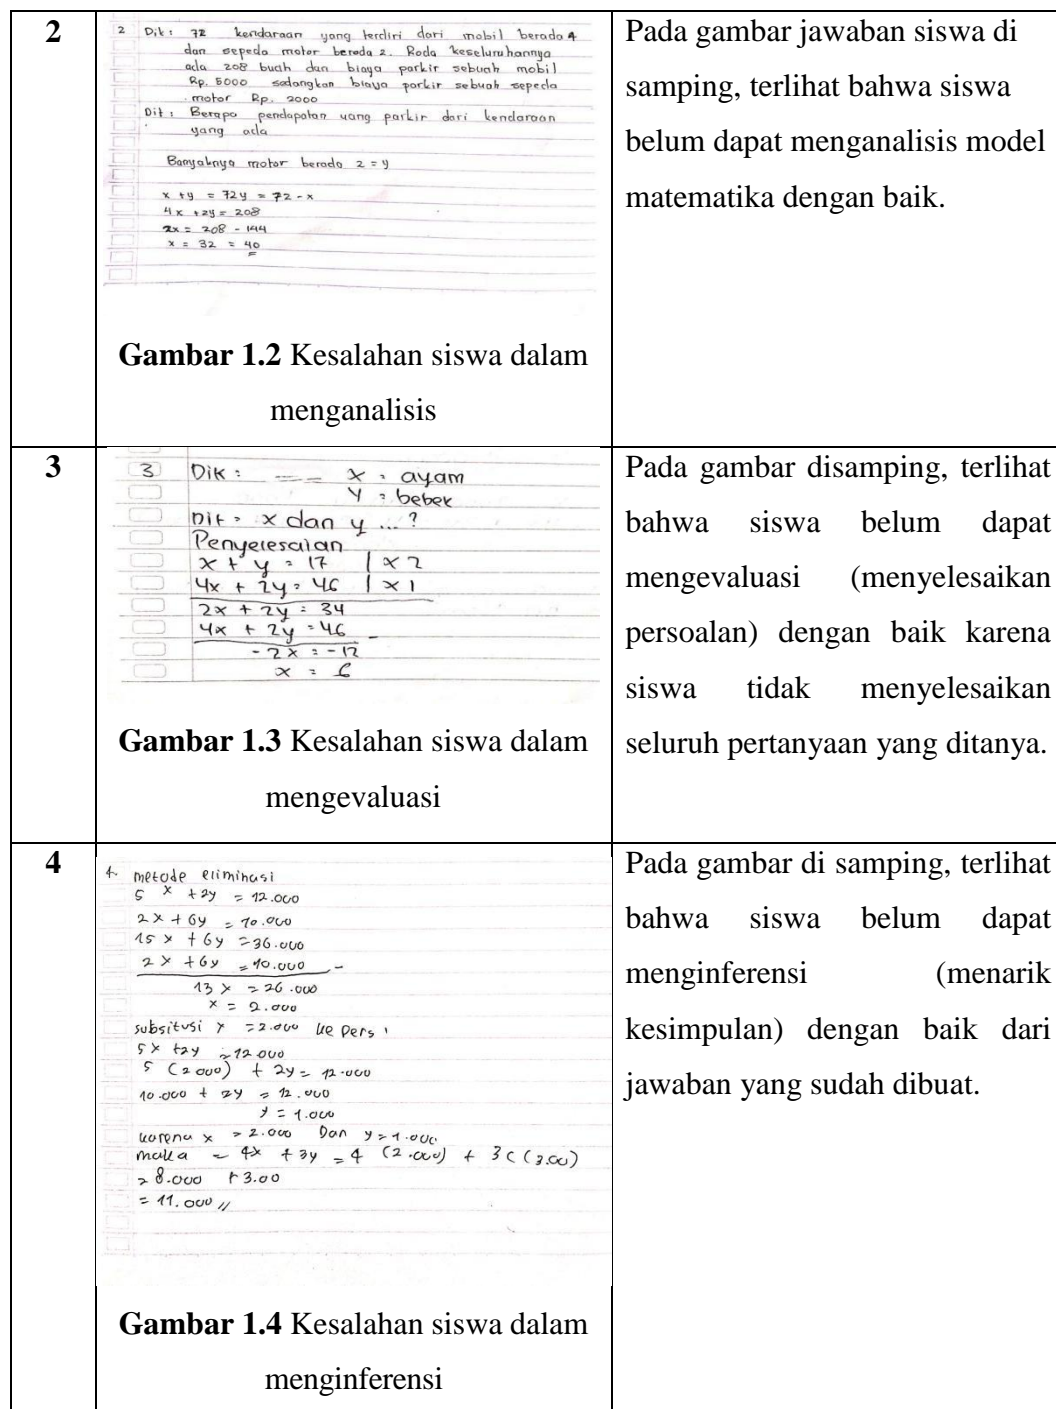 2
2 Dik : 72 kendaraan yang terdiri dari mobil beroda 4
dan sepeda motor beroda 2. Roda keseluruhannya
ada 208 buah dan biaya parkir sebuah mobil
Rp. 5000 sedangkan biaya parkir sebuah sepeda
motor Rp. 2000
Dit : Berapa pendapatan uang parkir dari kendaraan
yang ada
Banyaknya motor beroda 2 = y
x + y = 72 y = 72 - x
4x + 2y = 208
2x = 208 - 144
x = 32 = 40
Gambar 1.2 Kesalahan siswa dalam
menganalisis
Pada gambar jawaban siswa di
samping, terlihat bahwa siswa
belum dapat menganalisis model
matematika dengan baik.
3
3 Dik : x : ayam
y : bebek
Dit : x dan y ... ?
Penyelesaian
x + y = 17 | x 2
4x + 2y = 46 | x 1
2x + 2y = 34
4x + 2y = 46 -
-2x = -12
x = 6
Gambar 1.3 Kesalahan siswa dalam
mengevaluasi
Pada gambar disamping, terlihat
bahwa siswa belum dapat
mengevaluasi (menyelesaikan
persoalan) dengan baik karena
siswa tidak menyelesaikan
seluruh pertanyaan yang ditanya.
4
4. metode eliminasi
5 x + 2y = 12.000
2x + 6y = 10.000
15 x + 6y = 36.000
2x + 6y = 10.000 -
13 x = 26.000
x = 2.000
subsitusi x = 2.000 ke pers 1
5x + 2y = 12.000
5 (2000) + 2y = 12.000
10.000 + 2y = 12.000
y = 1.000
karena x = 2.000 Dan y = 1.000
maka = 4x + 3y = 4 (2.000) + 3 ( (3.00)
= 8.000 + 3.00
= 11.000 //
Gambar 1.4 Kesalahan siswa dalam
menginferensi
Pada gambar di samping, terlihat
bahwa siswa belum dapat
menginferensi (menarik
kesimpulan) dengan baik dari
jawaban yang sudah dibuat.